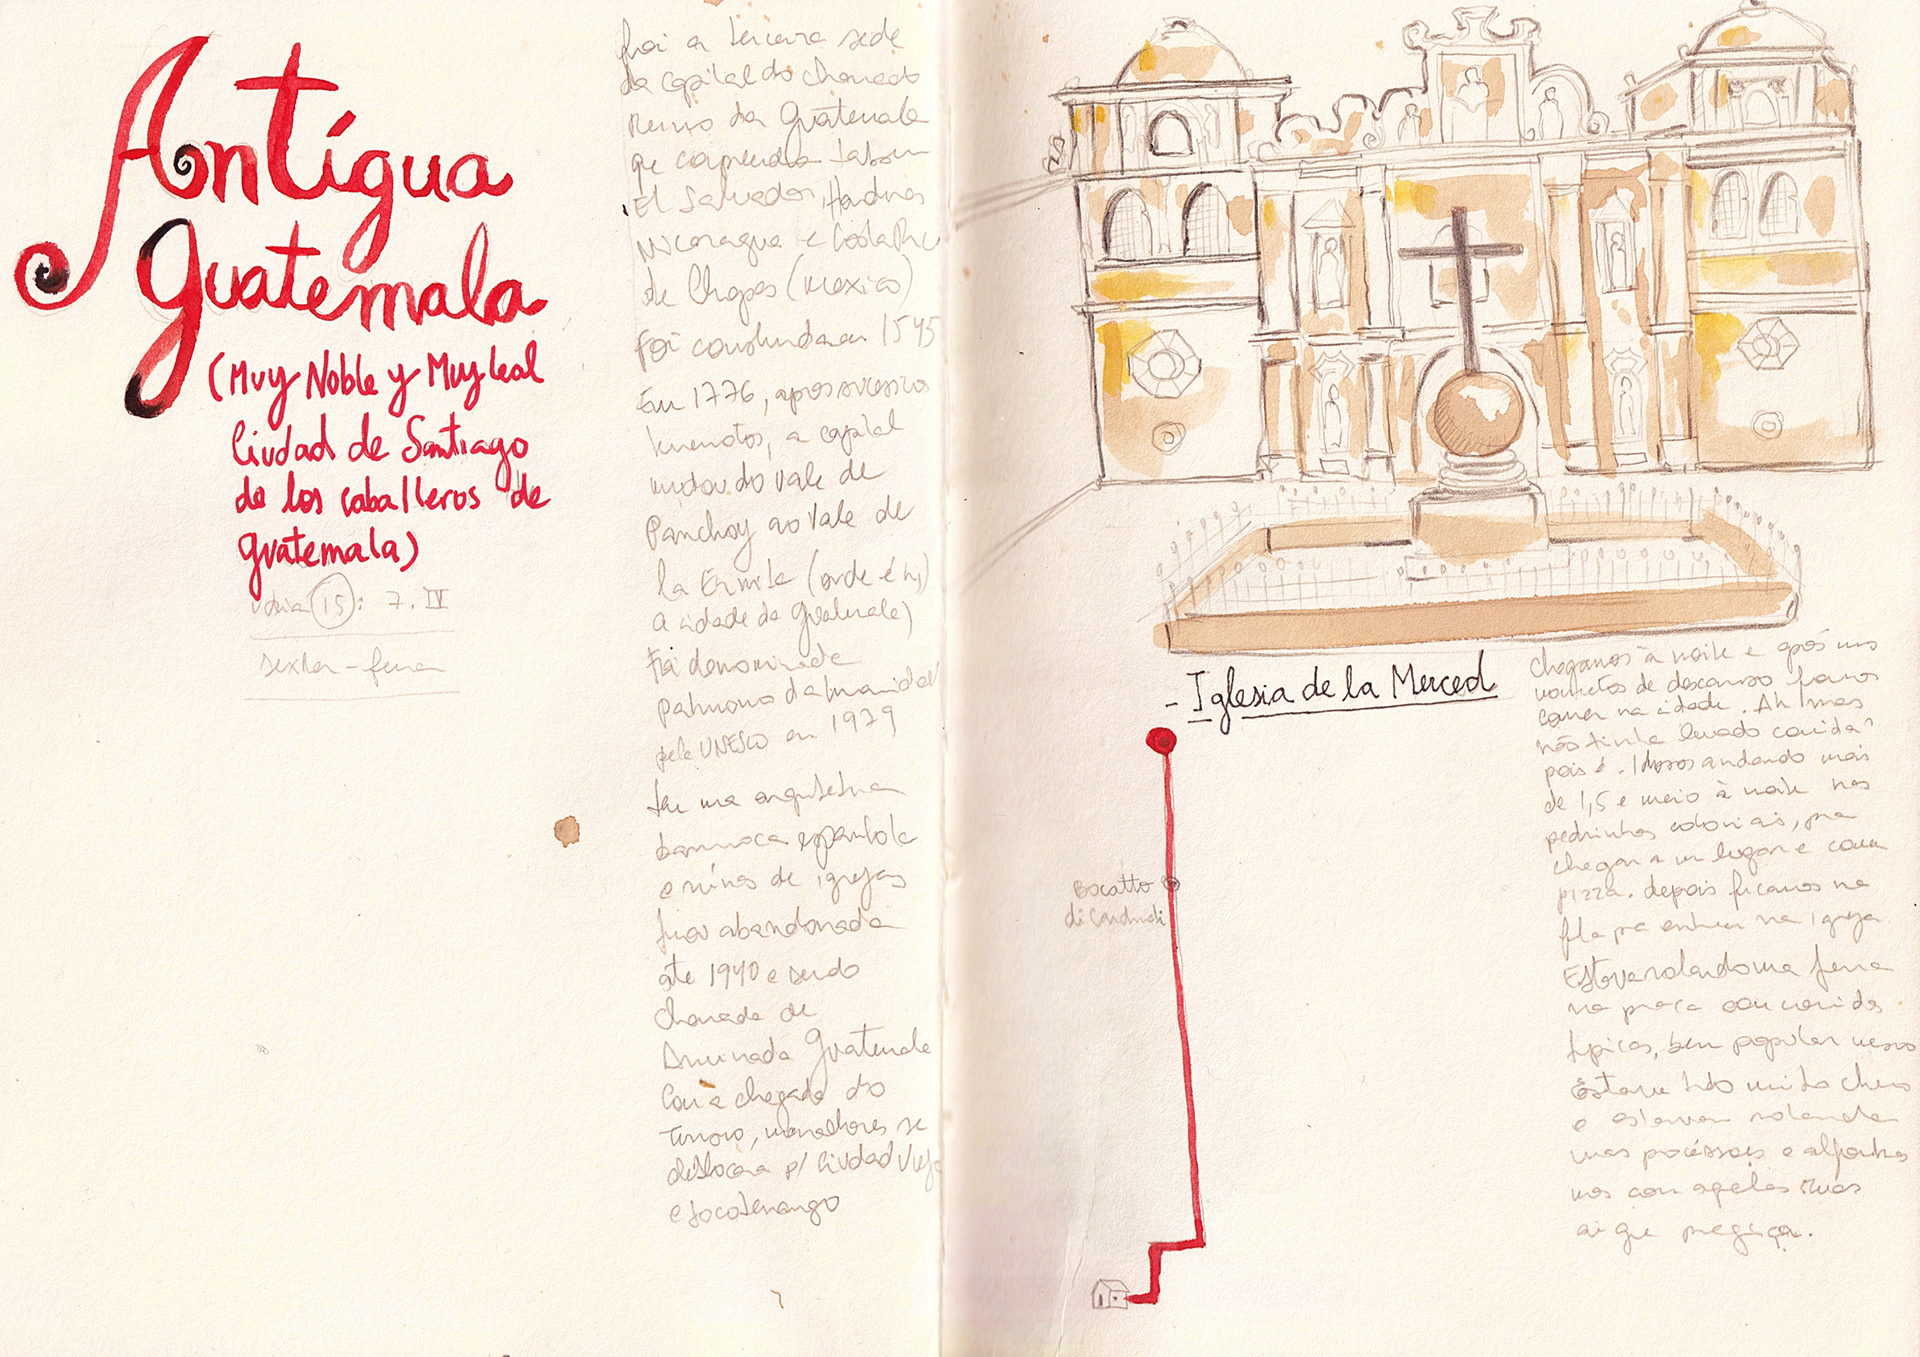 Antígua
Guatemala
(Muy Noble y Muy Leal
Ciudad de Santiago
de los caballeros de
Guatemala)
dia 15: 7. IV
sexta-feira
foi a terceira sede
da capital do chamado
Reino da Guatemala
que
El Salvador, Honduras
Nicaragua e Costa Rica
de Chiapas (mexico)
foi construida em 1545
Em 1776, apos sucessivos
terremotos, a capital
mudou do vale de
Panchoy ao Vale de
la Ermita (onde é hj
a cidade da Guatemala)
Foi denominada
patrimonio da humanidade
pela UNESCO em 1979
tem uma arquitetura
barroca espanhola
e ruínas de igrejas
ficou abandonada
até 1940 e sendo
chamada de
Arruinada Guatemala
Com a chegada do
moradores se
p/ Ciudad Vieja
e Jocotenango
- Iglesia de la Merced
Bocatto
di Cardinali
chegamos à noite e após uns
de descanso fomos
comer na cidade. Ah! mas
nós tinha levado comida?
pois é. andando mais
de 1,5 e meio à noite nas
pedrinhas coloniais, pra
chegar a um lugar e comer
pizza. depois ficamos na
fila pra entrar na igreja.
Estava rolando uma feira
na praça com comidas
tipicas, bem popular mesmo
Estava tudo muito cheio
e estavam rolando
umas procéssoes e
com aquelas ruas
ai que preguiça.